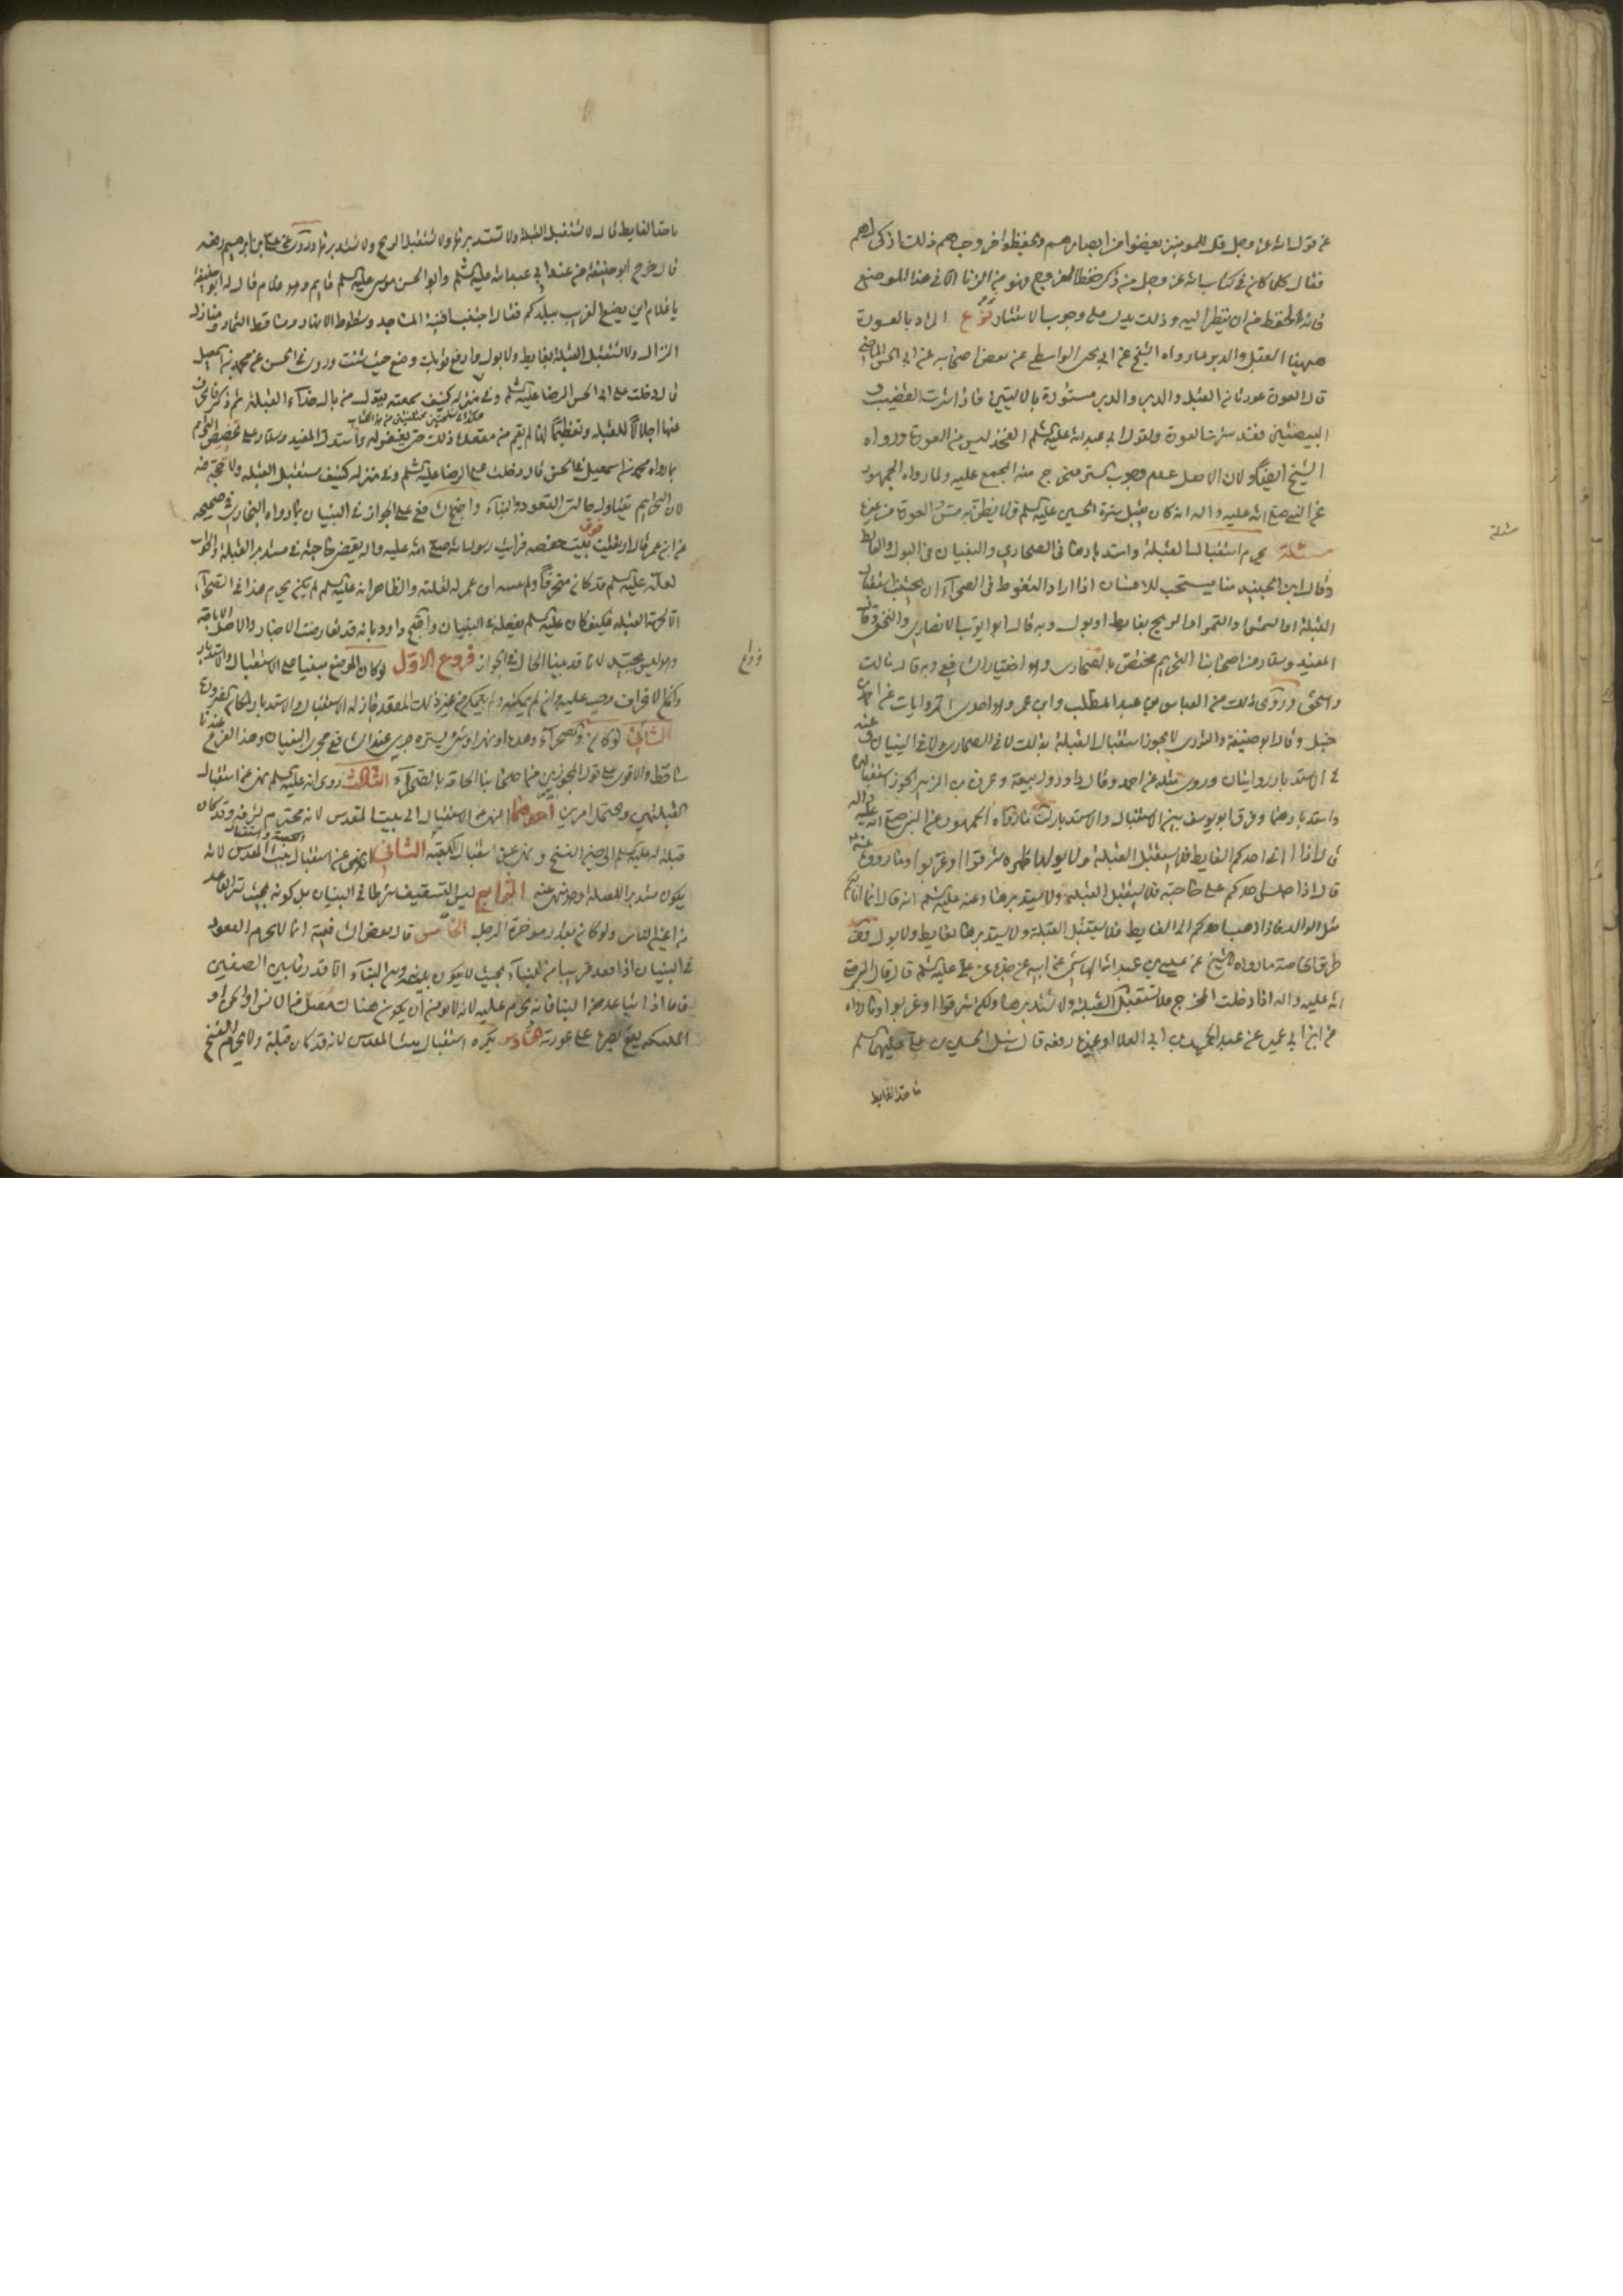 عن قول الله عز وجل قل للمومنين يغضوا من ابصارهم ويحفظوا فروجهم ذلك ازكى لهم
فقال كلما كان في كتاب الله عز وجل من ذكر حفظ الفرج فهو من الزنا الا في هذا الموضع
فانه للحفظ من ان ينظر اليه وذلك يدل على وجوب الاستتار فرع المراد بالعورة
ههنا القبل والدبر لما رواه الشيخ عن ابي يحيى الواسطي عن بعض اصحابه عن ابي الحسن الماضي
قال العورة عورتان القبل والدبر والدبر مستورة بالاليتين فاذا سترت القضيب و
البيضتين فقد سترت العورة ولقول ابي عبد الله عليه السلم الفخذ ليس من العورة ورواه
الشيخ ايضا ولان الاصل عدم وجوب الستر فيخرج منه المجمع عليه ولما رواه الجمهور
عن النبي صلى الله عليه واله انه كان يقبل سرة الحسين عليه السلم
مسئلة يحرم استقبال القبلة واستدبارها في الصحاري والبنيان في البول والغايط
وقال ابن الجنيد منا يستحب للانسان اذا اراد التغوط في الصحراء ان يجتنب استقبال
القبلة او الشمس او القمر او الريح بغايط او بول وبه قال ابو ايوب الانصاري والنخعي وقال
المفيد وسلار من اصحابنا التحريم مختص بالصحاري وهو اختيار الشافعي وبه قال مالك
واسحق وروى ذلك عن العباس بن عبد المطلب وابن عمر وهو احدى الروايات عن احمد بن
حنبل وقال ابو حنيفة والثوري لا يجوز استقبال القبلة بذلك لا في الصحاري ولا في البنيان وعنه
في الاستدبار روايتان وروى مثله عن احمد وقال داود وربيعة وعروة بن الزبير يجوز استقبالها
واستدبارها وفرق ابو يوسف بين الاستقبال والاستدبار لنا ما رواه الجمهور عن النبي صلى الله عليه واله
قال اذا اتى احدكم الغايط فلا يستقبل القبلة ولا يولها ظهره شرقوا او غربوا وما رووه عنه
قال اذا جلس احدكم على حاجته فلا يستقبل القبلة ولا يستدبرها وعنه عليه السلم انه قال انما انا لكم
مثل الوالد فاذا ذهب احدكم الى الغايط فلا يستقبل القبلة ولا يستدبرها بغايط ولا بول ومن
طريق الخاصة ما رواه الشيخ عن عيسى بن عبد الله الهاشمي عن ابيه عن جده عن علي عليه السلم قال قال النبي صلى
الله عليه واله اذا دخلت المخرج فلا تستقبل القبلة ولا تستدبرها ولكن شرقوا او غربوا وما رواه
عن ابن ابي عمير عن عبد الحميد بن ابي العلا او غيره رفعه قال سئل الحسين بن علي عليهما السلم
ما حد الغايط
مسئلة
ما حد الغايط قال لا تستقبل القبلة ولا تستدبرها ولا تستقبل الريح ولا تستدبرها وروى عن علي بن ابرهيم رفعه
قال خرج ابو حنيفة من عند ابي عبد الله عليه السلم وابو الحسن موسى عليه السلم قايم وهو غلام فقال له ابو حنيفة
يا غلام اين يضع الغريب ببلدكم فقال اجتنب افنية المساجد وشطوط الانهار ومساقط الثمار ومنازل
النزال ولا تستقبل القبلة بغايط ولا بول وارفع ثوبك وضع حيث شئت وروى في الحسن عن محمد بن اسمعيل
قال دخلت على ابي الحسن الرضا عليه السلم وفي منزله كنيف سمعته يقول من بال حذاء القبلة ثم ذكر فانحرف
عنها اجلالا للقبلة وتعظيما لها لم يقم من مقعده ذلك حتى يغفر له واستدل المفيد وسلار على تخصيص التحريم
بما رواه محمد بن اسمعيل عن الحسن قال دخلت على الرضا عليه السلم وفي منزله كنيف مستقبل القبلة ولا حجة فيه
لان التحريم يتناول حالتي القعود والبناء واحتج الشافعي على الجواز في البنيان بما رواه البخاري في صحيحه
عن ابن عمر قال ارتقيت فوق بيت حفصة فرايت رسول الله صلى الله عليه واله يقضي حاجته في مستدبر القبلة والجواب
لعله عليه السلم قد كان منحرفا والظاهر انه عليه السلم لم يكن يحرم هذا في الصحراء
القبلة فكيف كان عليه السلم يفعله في البنيان واحتج داود بانه قد تعارضت الاخبار والاصل الاباحة
وهو ليس بجيد لانا قد بينا الحال في الجواز فروع الاول لو كان الموضع مبنيا على الاستقبال والاستدبار
الثاني لو كان في الصحراء وهدة او نهر او شئ يستره جرى عند الشافعي مجرى البنيان وهذا الفرع عندنا
ساقط والاقوى على قول المجوزين من اصحابنا الحاقه بالصحراء الثالث روى انه عليه السلم نهى عن استقبال
القبلتين ويحتمل امرين احدهما النهي عن الاستقبال الى بيت المقدس لانه محترم لشرفه وقد كان
قبلة له عليه السلم الى حين النسخ ونهى عن استقبال الكعبة الثاني النهي عن استقبال بيت المقدس لانه
يكون مستدبرا للقبلة وهو نهى عنه الرابع ليس التسقيف شرطا في البنيان بل كونه بحيث يستر القاعد
من اعين الناس ولو كان بقدر موخرة الرحل الخامس قال بعض الشافعية انما لا يحرم القعود
في البنيان اذا قعد قريبا من البناء بحيث لا يكون بينه وبين البناء الا قدر ما بين الصفين
فاما اذا تباعد من البنا فانه يحرم عليه لانه لا يومن ان يكون هناك مصل من الانس او الجن او
الملئكه يقع بصره على عورته السادس يكره استقبال بيت المقدس لانه قد كان قبلة ولا يحرم للنسخ
فروع